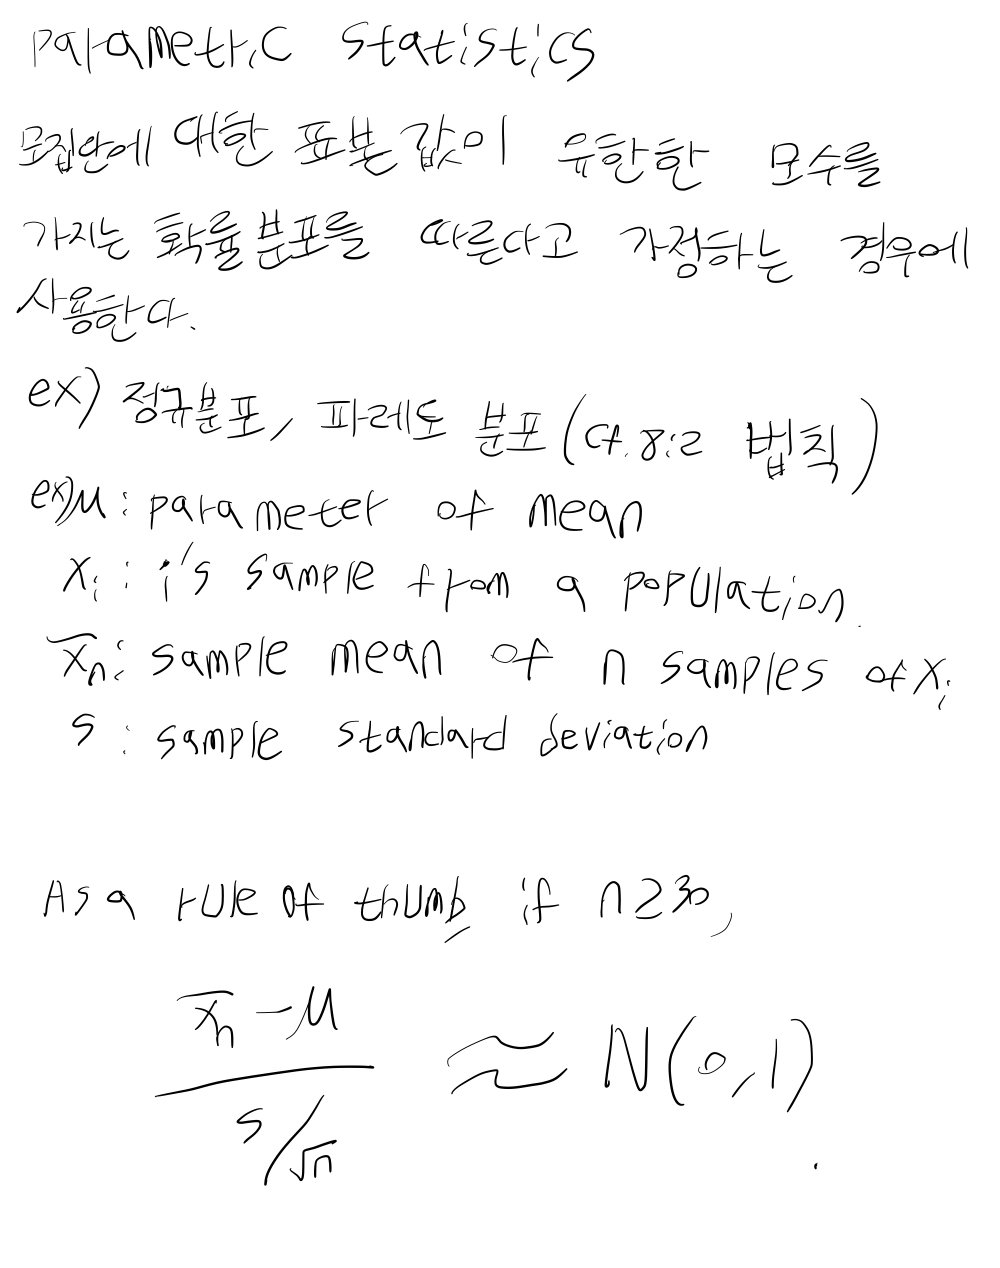 parametric statistics
모집안에 대한 표본 값이 유한한 모수를
가지는 확률분포를 따른다고 가정하는 경우에
사용한다.
ex) 정규분포, 파레도 분포 (cf. 8:2 법칙)
ex) μ : parameter of mean
xᵢ : i's sample from a population.
x̅ₙ : sample mean of n samples of xᵢ
s : sample standard deviation
As a rule of thumb, if n≥30,
(x̅ₙ - μ) / (s/√n) ≈ N(0,1).